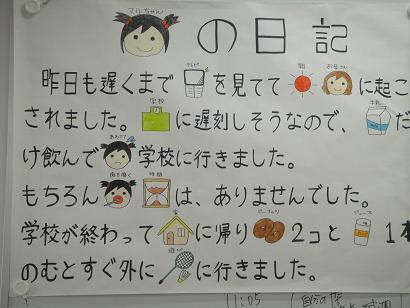 マルちゃん の日記
昨日も遅くまで テレビ を見てて 朝 お母さん に起こ
されました。 学校 に遅刻しそうなので、 牛乳 だ
け飲んで あわてて 学校に行きました。
もちろん 歯を磨く 時間 は、ありませんでした。
学校が終わって 家 に帰り ドーナツ 2コと ジュース 1本
のむとすぐ外に 遊び に行きました。
11:05